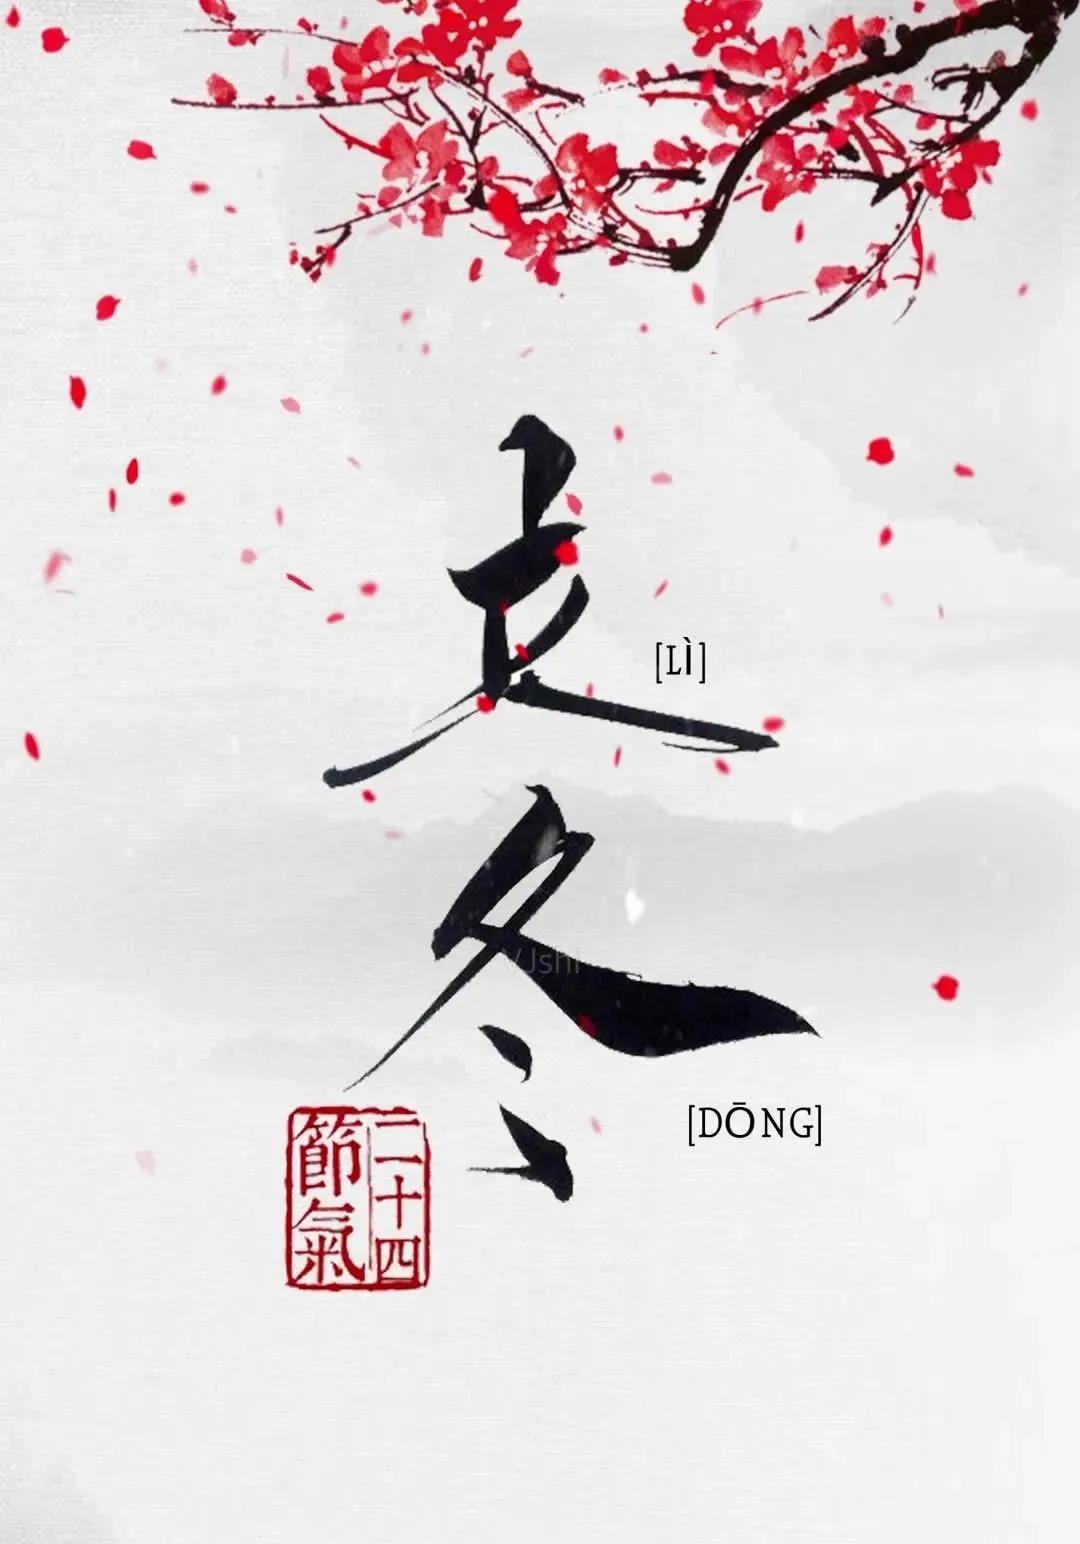 立
[LÌ]
冬
VJshi
[DŌNG]
二十四
節氣